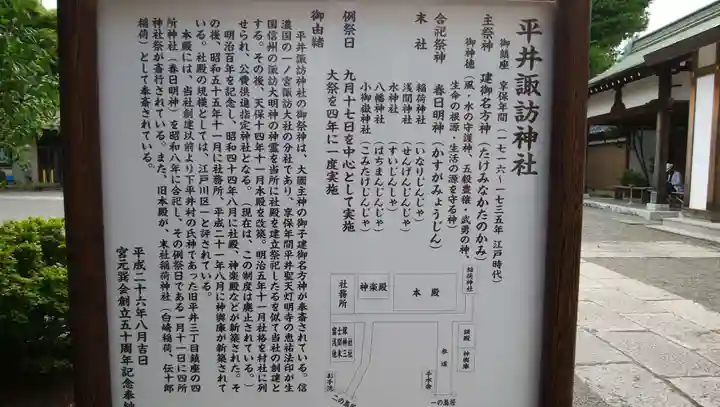 平井諏訪神社
御鎮座 享保年間(一七一六〜一七三五年 江戸時代)
主祭神 建御名方神(たけみなかたのかみ)
御神徳(風・水の守護神、五穀豊穣・武勇の神、
生命の根源・生活の源を守る神)
合祀祭神 春日明神(かすがみょうじん)
末社 稲荷神社(いなりじんじゃ)
浅間神社(せんげんじんじゃ)
水神社(すいじんじゃ)
八幡神社(はちまんじんじゃ)
小御嶽神社(こみたけじんじゃ)
例祭日 九月十七日を中心として実施
大祭を四年に一度実施
御由緒
平井諏訪神社の御祭神は、大國主神の御子建御名方神が奉斎されている。信
濃国の一ノ宮諏訪大社の分社であり、享保年間平井聖天灯明寺の恵祐法印が生
国信州の諏訪大明神の神霊を当所に社殿を建立祭祀したるを似て当社の創建と
する。その後、天保十四年十一月本殿を改築。明治五年十一月社格を村社に列
せられ、公費供進指定神社となる。(現在は、この制度は廃止されている。)
明治百年を記念し、昭和四十四年八月に社殿、神楽殿などが新築された。そ
の後、昭和五十五年十一月に社務所、平成二十一年八月に神輿庫が新築されて
いる。社殿の規模としては、江戸川区一と評されている。
本殿には、当社創建以前より下平井村の氏神であった旧平井三丁目鎮座の四
所神社(春日明神)を昭和八年に合祀し、その例祭日である一月十一日に四所
神社祭が斎行されている。また、旧本殿が、末社稲荷神社(白崎稲荷、伝十郎
稲荷)として奉斎されている。
平成二十六年八月吉日
宮元巽会創立五十周年記念奉納
稲荷神社
本殿
神楽殿
社務所
額殿
神輿庫
参道
手水舎
一の鳥居
富士塚
浅間神社
他末三社
お手洗
二の鳥居